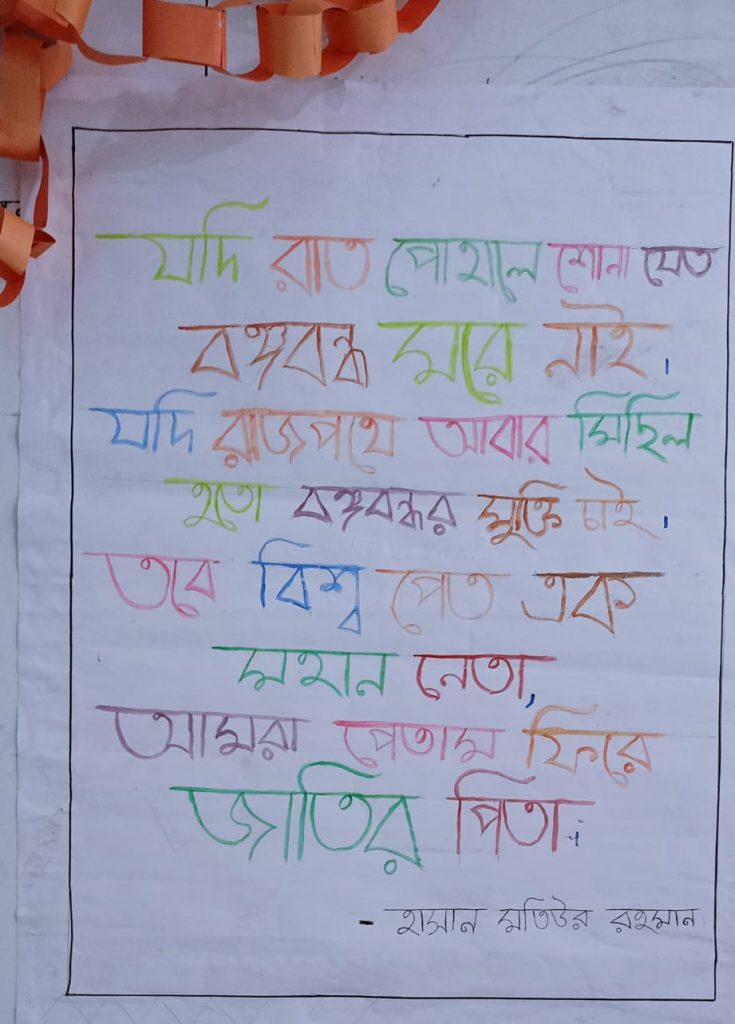 যদি রাত পোহালে শোনা যেত
বঙ্গবন্ধু মরে নাই।
যদি রাজপথে আবার মিছিল
হতো বঙ্গবন্ধুর মুক্তি চাই।
তবে বিশ্ব পেত এক
মহান নেতা,
আমরা পেতাম ফিরে
জাতির পিতা।
- হাসান মতিউর রহমান